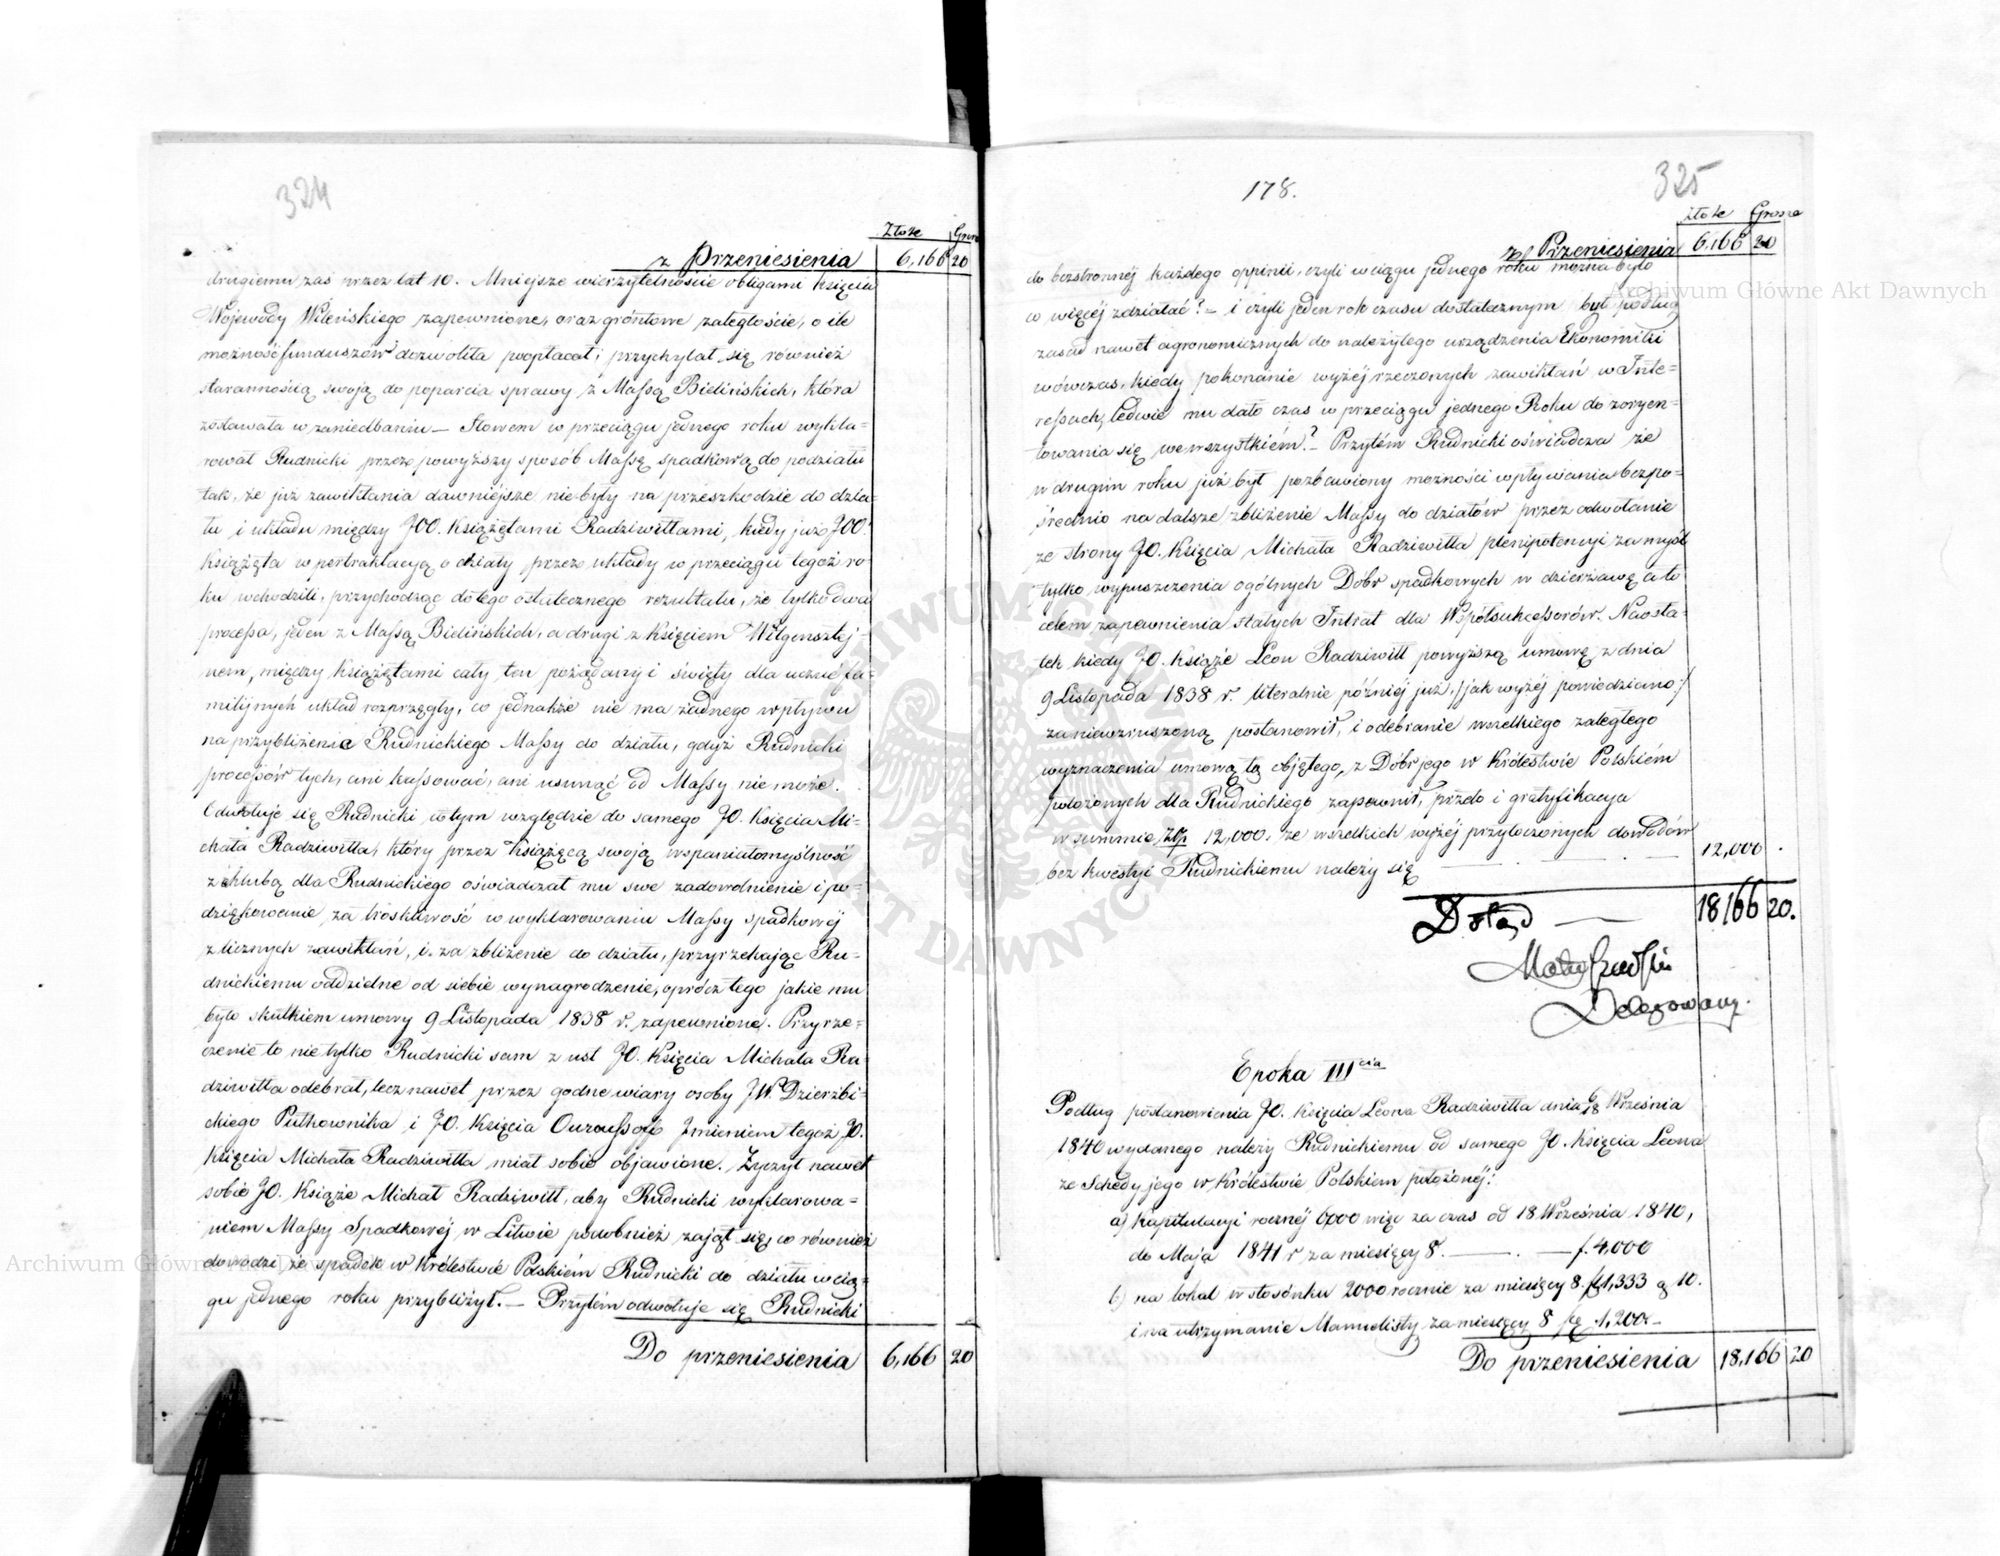 324
Złote Grosze
z Przeniesienia 6,166 20
drugiemu zaś przez lat 10. Mniejsze wierzytelności obligami Księcia
Wojewody Wileńskiego zapewnione, oraz gróntowe zaległoście, o ile
możność funduszów dozwoliła popłacał; przychylał się również
starannością swoją do poparcia sprawy z Massą Bielińskich, która
zostawała w zaniedbaniu — Słowem w przeciągu jednego roku wykla=
rował Rudnicki przez powyższy sposób Massę spadkową do podziału
tak, że już zawikłania dawniejsze nie były na przeszkodzie do dzia=
łu i układu między JOO. Książętami Radziwiłłami, kiedy już JOO.
Książęta w pertraktacyą o działy przez układy w przeciągu tegoż ro=
ku wchodzili, przychodząc do tego ostatecznego rezultatu, że tylko dwa
processa, jeden z Massą Bielińskich, a drugi z Księciem Witgensztej=
nem, między Książętami cały ten pożądany i święty dla uczuć fa=
milijnych układ rozprzęgły, co jednakże nie ma żadnego wpływu
na przybliżenie Rudnickiego Massy do działu, gdyż Rudnicki
processów tych, ani kassować, ani usunąć od Massy nie może.
Odwołuje się Rudnicki w tym względzie do samego JO. Księcia Mi=
chała Radziwiłła, który przez Książęcą swoją wspaniałomyślność
z chlubą dla Rudnickiego oświadczał mu swe zadowolnienie i po=
dziękowanie, za troskliwość w wyklarowaniu Massy spadkowéj
z licznych zawikłań, i za zbliżenie do działu, przyrzekając Ru=
dnickiemu oddzielne od siebie wynagrodzenie, oprócz tego jakie mu
było skutkiem umowy 9 Listopada 1838 r. zapewnione. Przyrze=
czenie to nie tylko Rudnicki sam z ust JO. Księcia Michała Ra=
dziwiłła odebrał, lecz nawet przez godne wiary osoby J.W. Dzierzbi=
ckiego Pułkownika i JO. Księcia Ouroussoff Imieniem tegoż JO.
Księcia Michała Radziwiłła miał sobie objawione. Życzył nawet
sobie JO. Książe Michał Radziwiłł, aby Rudnicki wyklarowa=
niem Massy Spadkowéj w Litwie podobnież zajął się, co również
dowodzi, że spadek w Królestwie Polskiém Rudnicki do działu w cią=
gu jednego roku przybliżył. — Przytém odwołuje się Rudnicki
Do przeniesienia 6,166 20
178.
325
Złote Grosze
z Przeniesienia 6,166 20
do bezstronnéj każdego oppinii, czyli w ciągu jednego roku można było
co więcéj zdziałać? — i czyli jeden rok czasu dostatecznym był podług
zasad nawet agronomicznych do należytego urządzenia Ekonomiki
wówczas, kiedy pokonanie wyżéj rzeczonych zawikłań w Inte=
ressach, ledwie mu dało czas w przeciągu jednego Roku do zoryen=
towania się we wszystkiém? — Przytém Rudnicki oświadcza że
w drugim roku już był pozbawiony możności wpływania bezpo=
średnio na dalsze zbliżenie Massy do działów przez odwołanie
ze strony JO. Księcia Michała Radziwiłła plenipotencyi za myśl
tylko wypuszczenia ogólnych Dóbr spadkowych w dzierżawę a to
celem zapewnienia stałych Intrat dla Współsukcessorów. Naosta=
tek kiedy JO. Książe Leon Radziwiłł powyższą umowę z dnia
9 Listopada 1838 r. literalnie późniéj już /:jak wyżéj powiedziano:/
za niewzruszoną postanowił, i odebranie wszelkiego zaległego
wyznaczenia umową tą objętego, z Dóbr jego w Królestwie Polskiém
położonych dla Rudnickiego zapewnił, przeto i gratyfikacya
w summie złp. 12,000. ze wszelkich wyżéj przytoczonych dowodów
bez kwestyi Rudnickiemu należy się 12,000 .
Dotąd — 18166 20.
Delegowany.
Epoka III cia
Podług postanowienia JO. Księcia Leona Radziwiłła dnia 6/18 Września
1840 wydanego należy Rudnickiemu od samego JO. Księcia Leona
ze Schedy jego w Królestwie Polskiem położonéj:
a) Kapitulacyi rocznéj 6000 więc za czas od 18 Września 1840,
do Maja 1841 r za miesięcy 8. — . — f. 4,000
b) na lokal w stosónku 2000 rocznie za miesięcy 8. f 1,333 g 10.
i na utrzymanie Manuelisty za miesięcy 8 1,200. —
Do przeniesienia 18,166 20
Archiwum Główne Akt Dawnych
Archiwum Główne Akt Dawnych